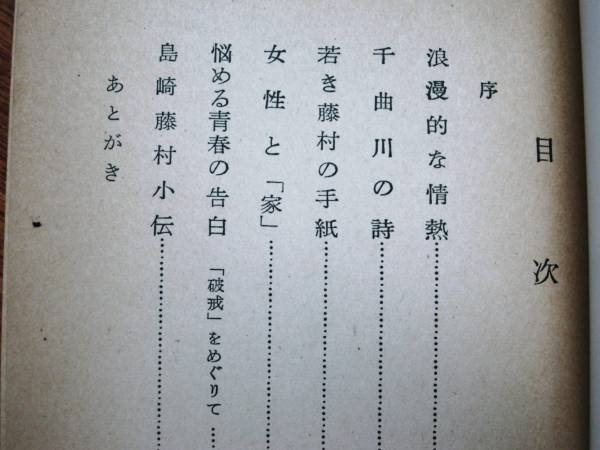 目次
序
浪漫的な情熱……………………
千曲川の詩……………………
若き藤村の手紙……………………
女性と「家」……………………
悩める青春の告白 「破戒」をめぐりて……
島崎藤村小伝……………………
あとがき